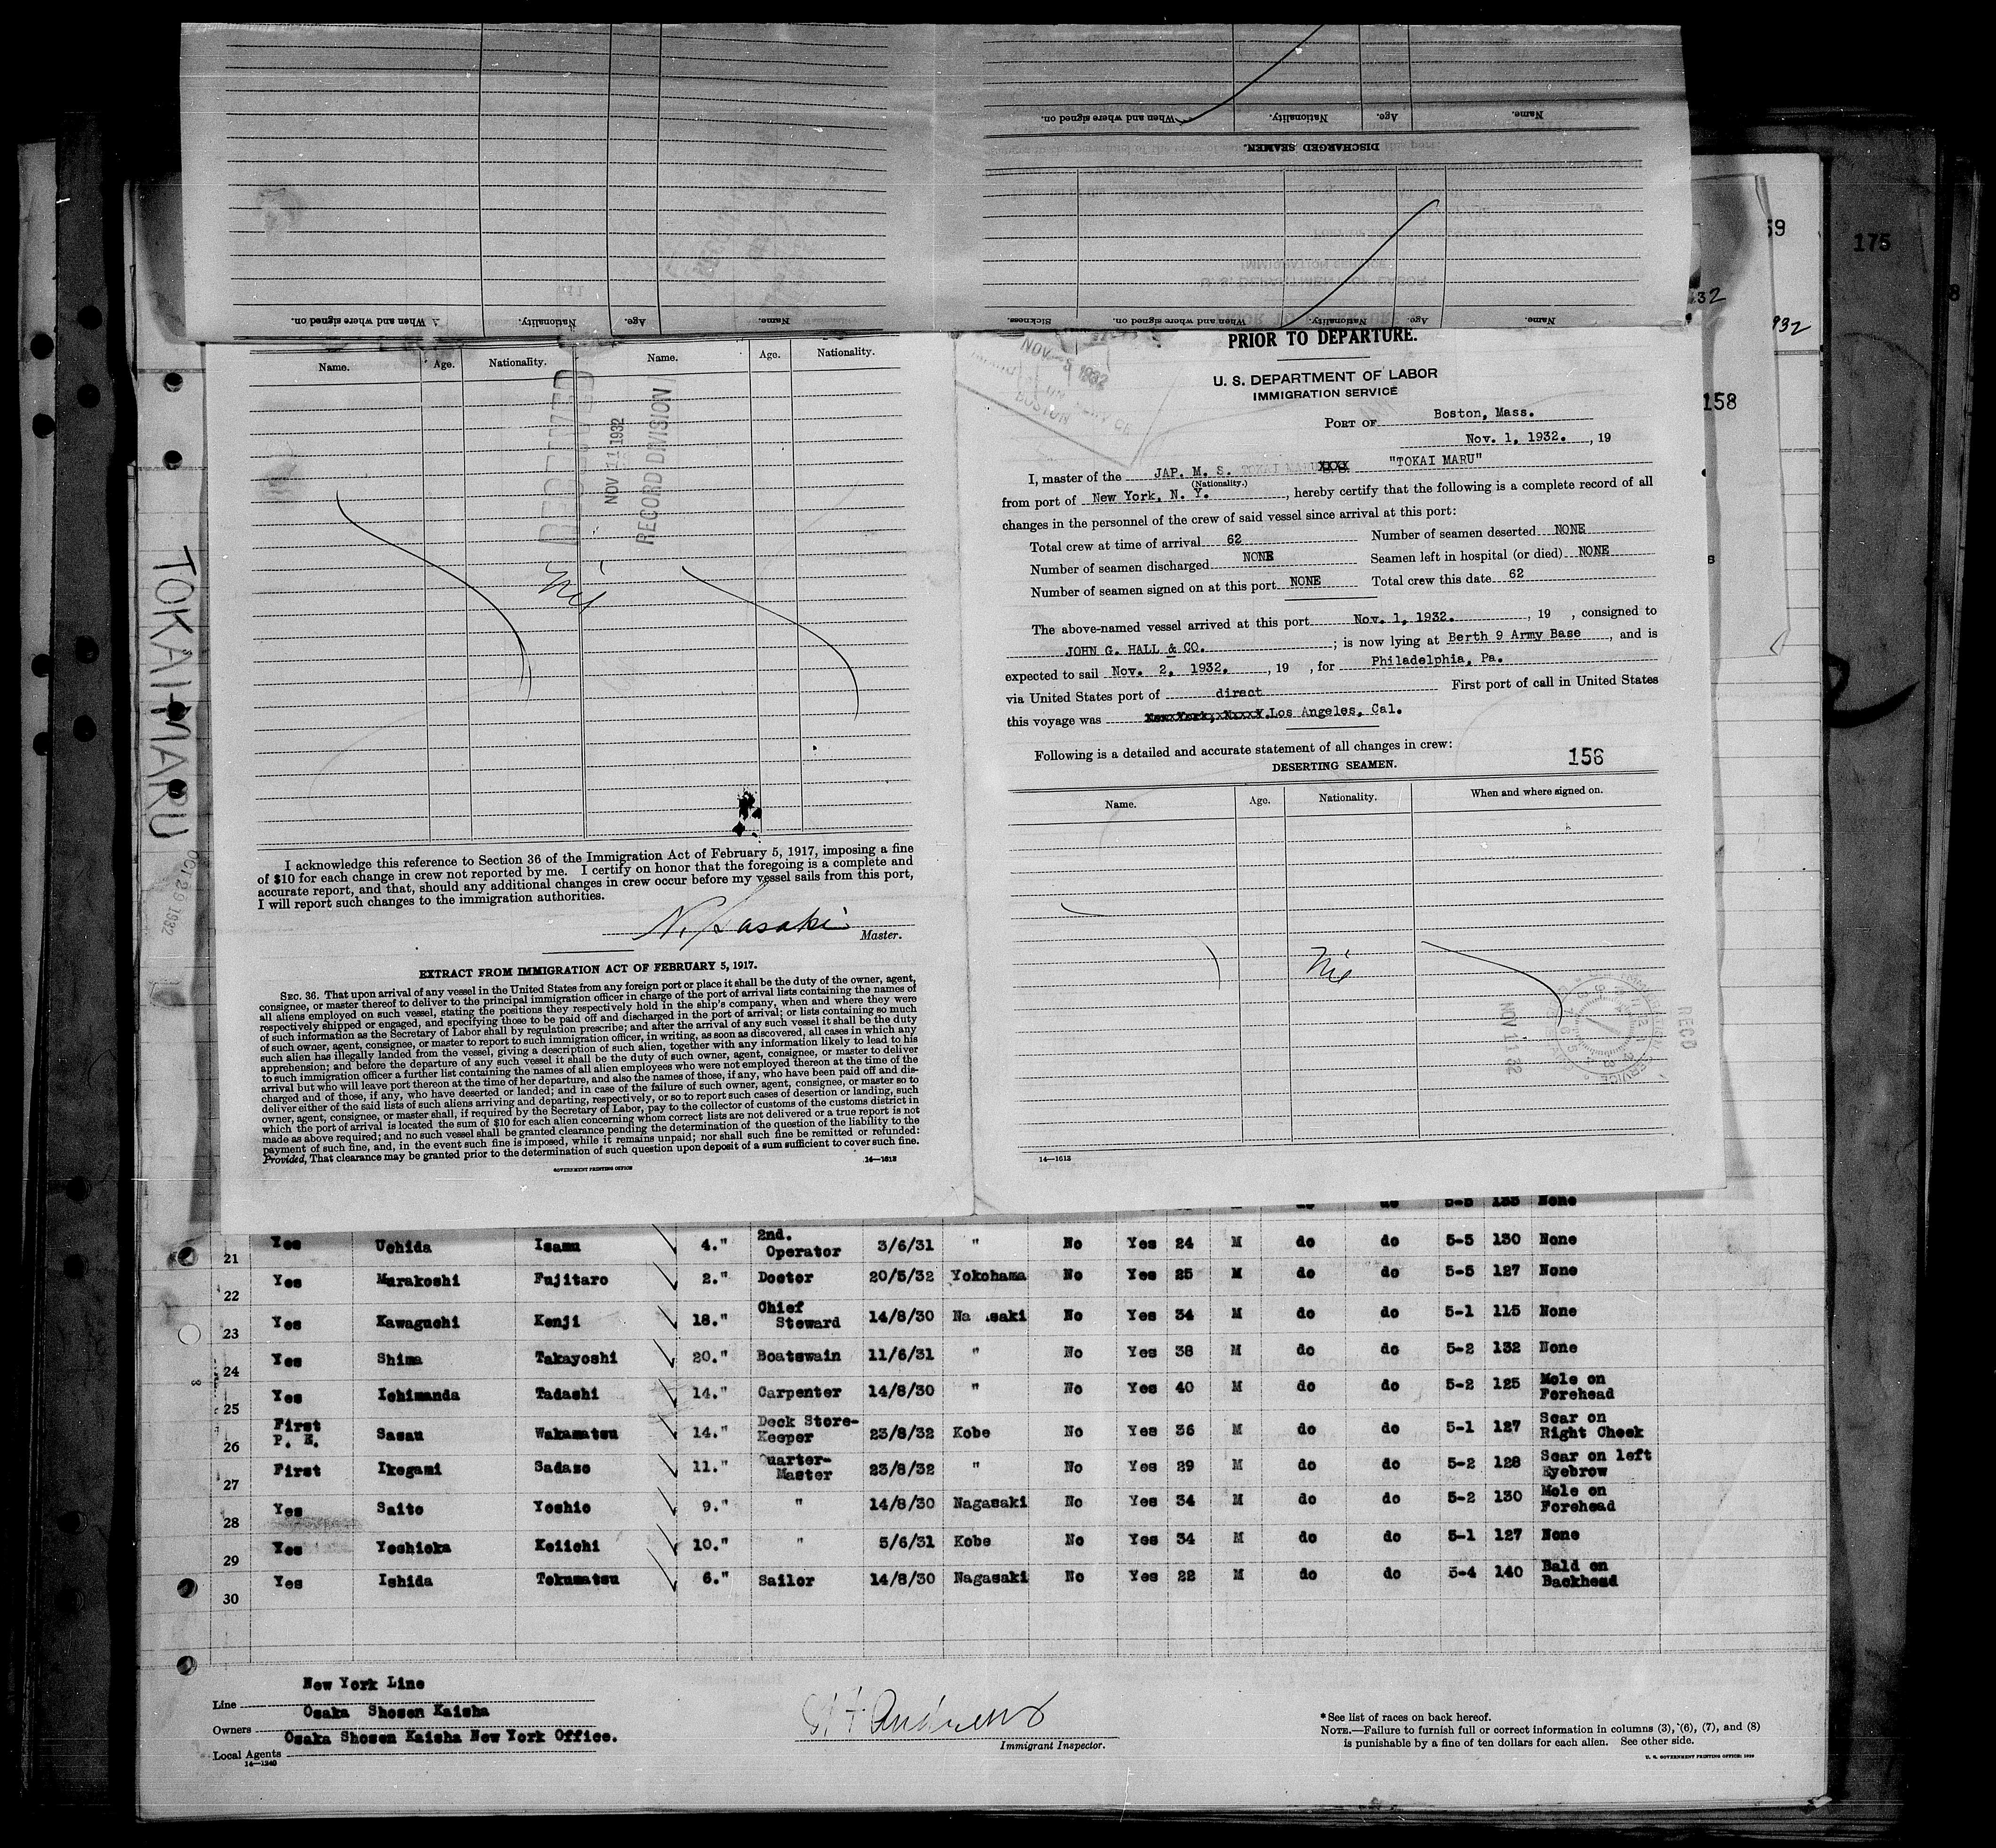 When and where signed on.
Nationality.
Age.
Name.
DISCHARGED SEAMEN.
When and where signed on.
Nationality.
Age.
Name.
Sickness.
When and where signed on.
Nationality.
Age.
Name.
59
175
8
32
932
158
TOKAI MARU
OCT 29 1932
Name.
Age.
Nationality.
Name.
Age.
Nationality.
RECEIVED
NOV 11 1932
RECORD DIVISION
Nil
I acknowledge this reference to Section 36 of the Immigration Act of February 5, 1917, imposing a fine
of $10 for each change in crew not reported by me. I certify on honor that the foregoing is a complete and
accurate report, and that, should any additional changes in crew occur before my vessel sails from this port,
I will report such changes to the immigration authorities.
N. Sasaki
Master.
EXTRACT FROM IMMIGRATION ACT OF FEBRUARY 5, 1917.
SEC. 36. That upon arrival of any vessel in the United States from any foreign port or place it shall be the duty of the owner, agent,
consignee, or master thereof to deliver to the principal immigration officer in charge of the port of arrival lists containing the names of
all aliens employed on such vessel, stating the positions they respectively hold in the ship's company, when and where they were
respectively shipped or engaged, and specifying those to be paid off and discharged in the port of arrival; or lists containing so much
of such information as the Secretary of Labor shall by regulation prescribe; and after the arrival of any such vessel it shall be the duty
of such owner, agent, consignee, or master to report to such immigration officer, in writing, as soon as discovered, all cases in which any
such alien has illegally landed from the vessel, giving a description of such alien, together with any information likely to lead to his
apprehension; and before the departure of any such vessel it shall be the duty of such owner, agent, consignee, or master to deliver
to such immigration officer a further list containing the names of all alien employees who were not employed thereon at the time of the
arrival but who will leave port thereon at the time of her departure, and also the names of those, if any, who have been paid off and dis-
charged and of those, if any, who have deserted or landed; and in case of the failure of such owner, agent, consignee, or master so to
deliver either of the said lists of such aliens arriving and departing, respectively, or so to report such cases of desertion or landing, such
owner, agent, consignee, or master shall, if required by the Secretary of Labor, pay to the collector of customs of the customs district in
which the port of arrival is located the sum of $10 for each alien concerning whom correct lists are not delivered or a true report is not
made as above required; and no such vessel shall be granted clearance pending the determination of the question of the liability to the
payment of such fine, and, in the event such fine is imposed, while it remains unpaid; nor shall such fine be remitted or refunded:
Provided, That clearance may be granted prior to the determination of such question upon deposit of a sum sufficient to cover such fine.
GOVERNMENT PRINTING OFFICE 14—1613
PRIOR TO DEPARTURE.
NOV - 5 1932
BOSTON
U. S. DEPARTMENT OF LABOR
IMMIGRATION SERVICE
PORT OF Boston, Mass.
Nov. 1, 1932. , 19
I, master of the JAP. M. S. TOKAI MARU XXXX "TOKAI MARU"
(Nationality.)
from port of New York, N. Y. , hereby certify that the following is a complete record of all
changes in the personnel of the crew of said vessel since arrival at this port:
Total crew at time of arrival 62 Number of seamen deserted NONE
Number of seamen discharged NONE Seamen left in hospital (or died) NONE
Number of seamen signed on at this port NONE Total crew this date 62
The above-named vessel arrived at this port Nov. 1, 1932. , 19 , consigned to
JOHN G. HALL & CO. ; is now lying at Berth 9 Army Base , and is
expected to sail Nov. 2, 1932. , 19 , for Philadelphia, Pa.
via United States port of direct First port of call in United States
this voyage was Los Angeles, Cal.
Following is a detailed and accurate statement of all changes in crew: 158
DESERTING SEAMEN.
Name. Age. Nationality. When and where signed on.
Nil
NOV 1 1 32
REC'D
14—1613
do do 5-5 135 None
21 Yes Uchida Isamu 4." 2nd. Operator 3/6/31 " No Yes 24 M do do 5-5 130 None
22 Yes Murakoshi Fujitaro 2." Doctor 20/5/32 Yokohama No Yes 25 M do do 5-5 127 None
23 Yes Kawaguchi Kenji 18." Chief Steward 14/8/30 Na saki No Yes 34 M do do 5-1 115 None
24 Yes Shima Takayoshi 20." Boatswain 11/6/31 " No Yes 38 M do do 5-2 132 None
25 Yes Ichimanda Tadashi 14." Carpenter 14/8/30 " No Yes 40 M do do 5-2 125 Mole on Forehead
26 First P. E. Sasau Wakamatsu 14." Deck Store-Keeper 23/8/32 Kobe No Yes 36 M do do 5-1 127 Scar on Right Cheek
27 First Ikegami Sadazo 11." Quarter-Master 23/8/32 " No Yes 29 M do do 5-2 128 Scar on left Eyebrow
28 Yes Saito Yoshio 9." " 14/8/30 Nagasaki No Yes 34 M do do 5-2 130 Mole on Forehead
29 Yes Yoshioka Keiichi 10." " 5/6/31 Kobe No Yes 34 M do do 5-1 127 None
30 Yes Ishida Tokumatsu 6." Sailor 14/8/30 Nagasaki No Yes 22 M do do 5-4 140 Bald on Backhead
Line New York Line
Owners Osaka Shosen Kaisha
Local Agents Osaka Shosen Kaisha New York Office.
14—1240
Andrews
Immigrant Inspector.
*See list of races on back hereof.
NOTE.—Failure to furnish full or correct information in columns (3), (6), (7), and (8)
is punishable by a fine of ten dollars for each alien. See other side.
U. S. GOVERNMENT PRINTING OFFICE: 1929